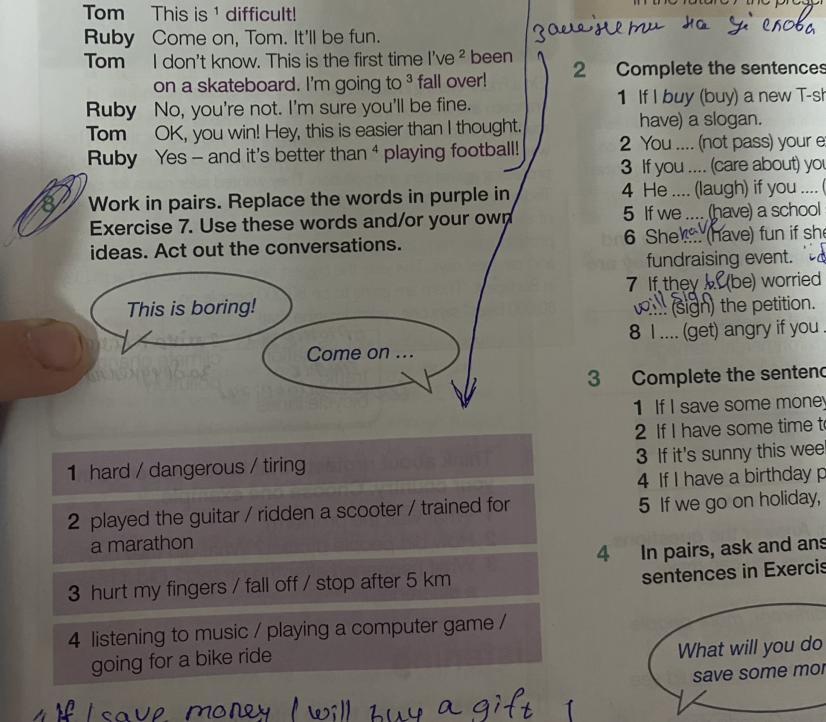 Tom This is ¹ difficult!
Ruby Come on, Tom. It'll be fun.
Tom I don't know. This is the first time I've ² been
on a skateboard. I'm going to ³ fall over!
Ruby No, you're not. I'm sure you'll be fine.
Tom OK, you win! Hey, this is easier than I thought.
Ruby Yes – and it's better than ⁴ playing football!
8 Work in pairs. Replace the words in purple in
Exercise 7. Use these words and/or your own
ideas. Act out the conversations.
This is boring!
Come on ...
1 hard / dangerous / tiring
2 played the guitar / ridden a scooter / trained for
a marathon
3 hurt my fingers / fall off / stop after 5 km
4 listening to music / playing a computer game /
going for a bike ride
If I save money I will buy a gift
на ці слова
2 Complete the sentences
1 If I buy (buy) a new T-sh
have) a slogan.
2 You .... (not pass) your e
3 If you .... (care about) you
4 He .... (laugh) if you .... (
5 If we .... (have) a school
6 She have (have) fun if she
fundraising event.
7 If they be (be) worried
will sign (sign) the petition.
8 I .... (get) angry if you .
3 Complete the sentenc
1 If I save some money
2 If I have some time to
3 If it's sunny this wee
4 If I have a birthday p
5 If we go on holiday,
4 In pairs, ask and ans
sentences in Exercis
What will you do
save some mon